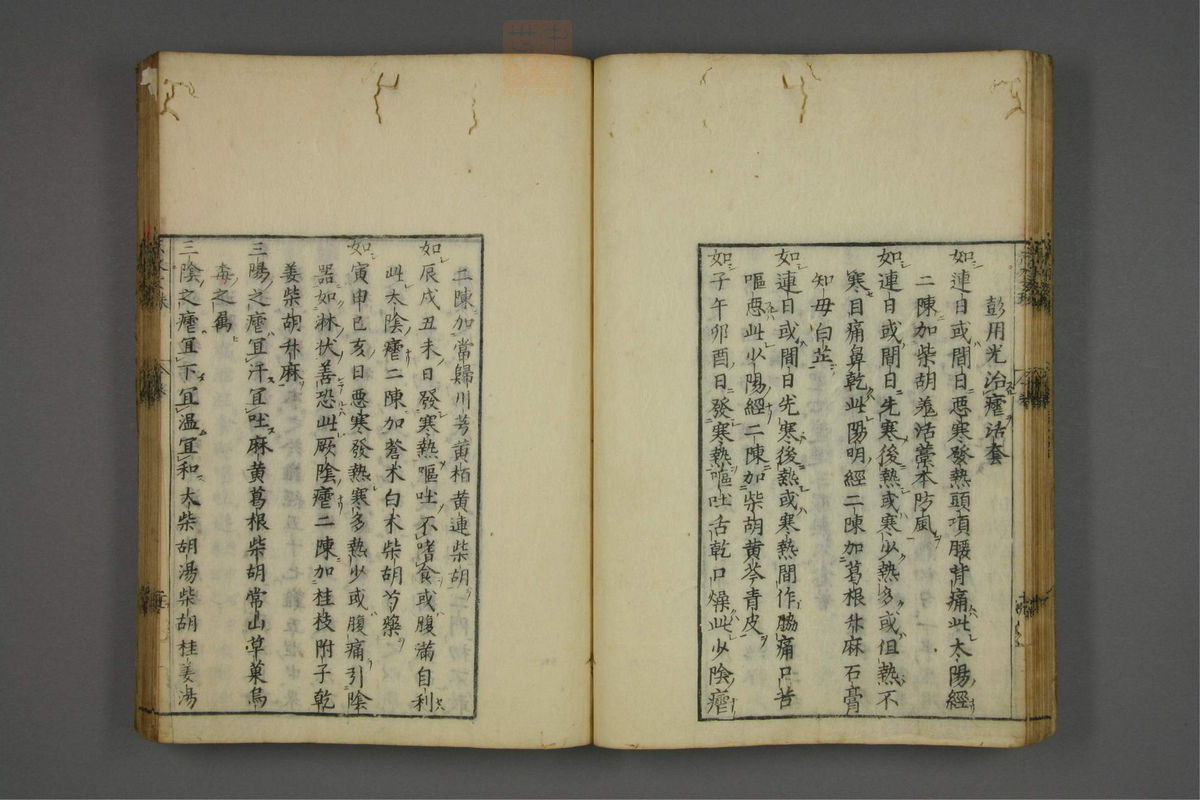 彭用光治瘧活套
如連日或間日惡寒發熱頭項腰背痛此太陽經
二陳加柴胡羗活藁本防風
如連日或間日先寒後熱或寒少熱多或但熱不
寒目痛鼻乾此陽明經二陳加葛根升麻石膏
知母白芷
如連日或間日先寒後熱或寒熱間作脇痛口苦
嘔惡此少陽經二陳加柴胡黄芩青皮
如子午卯酉日發寒熱嘔吐舌乾口燥此少陰瘧
二陳加當歸川芎黄栢黄連柴胡
如辰戌丑未日發寒熱嘔吐不嗜食或腹滿自利
此太陰瘧二陳加蒼朮白朮柴胡芍藥
如寅申巳亥日惡寒發熱寒多熱少或腹痛引陰
器如淋狀善恐此厥陰瘧二陳加桂枝附子乾
姜柴胡升麻
三陽之瘧宜汗宜吐麻黄葛根柴胡常山草菓烏
毒之属
三陰之瘧宜下宜温宜和大柴胡湯柴胡桂姜湯